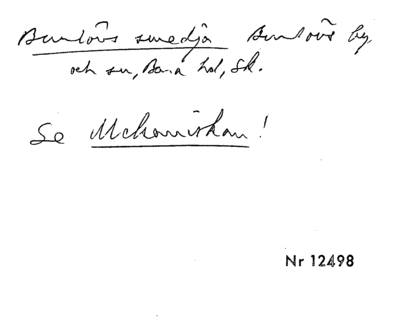 Burlövs smedja Burlövs by
och sn, Bara hd, Sk.
Se Mekaniskan!
Nr 12498